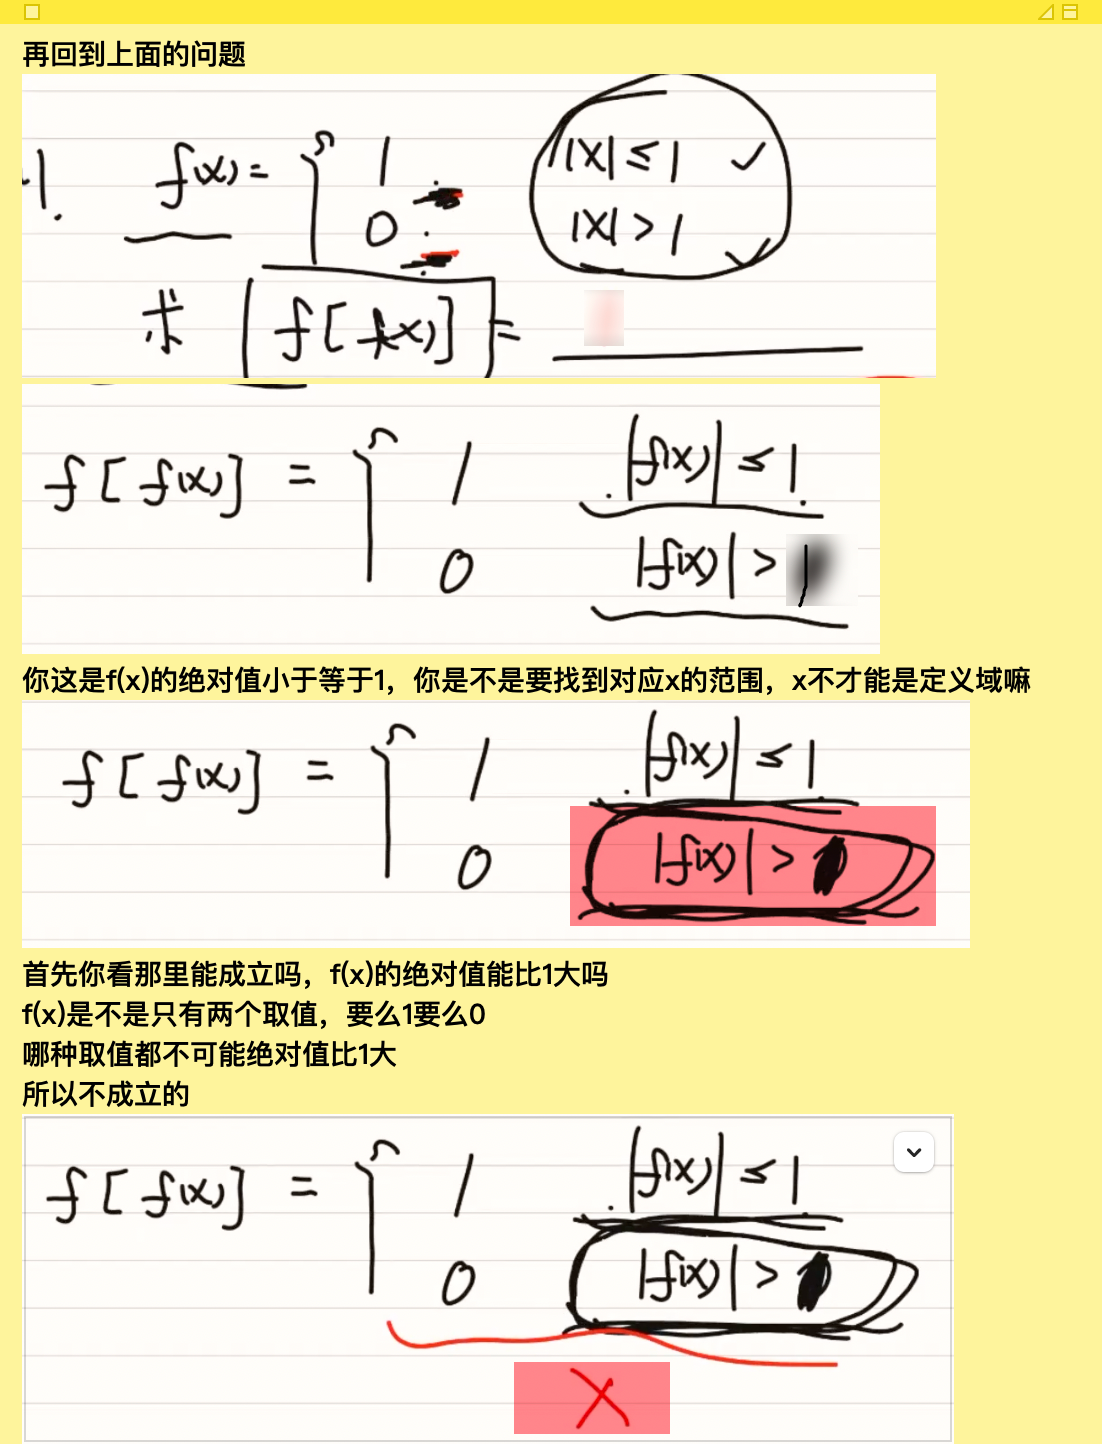 再回到上面的问题
1. f(x) = { 1 |x| ≤ 1 ✓
0 |x| > 1 ✓
求 f[f(x)] =
f[f(x)] = { 1 |f(x)| ≤ 1
0 |f(x)| > 1
你这是f(x)的绝对值小于等于1，你是不是要找到对应x的范围，x不才能是定义域嘛
f[f(x)] = { 1 |f(x)| ≤ 1
0 |f(x)| >
首先你看那里能成立吗，f(x)的绝对值能比1大吗
f(x)是不是只有两个取值，要么1要么0
哪种取值都不可能绝对值比1大
所以不成立的
f[f(x)] = { 1 |f(x)| ≤ 1
0 |f(x)| >
X